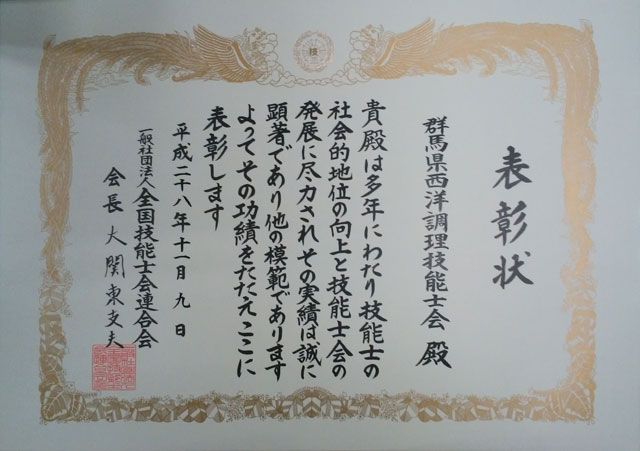 表彰状
群馬県西洋調理技能士会 殿
貴殿は多年にわたり技能士の
社会的地位の向上と技能士会の
発展に尽力されその実績は誠に
顕著であり他の模範であります
よってその功績をたたえここに
表彰します
平成二十八年十一月九日
一般社団法人全国技能士会連合会
会長 大関東支夫